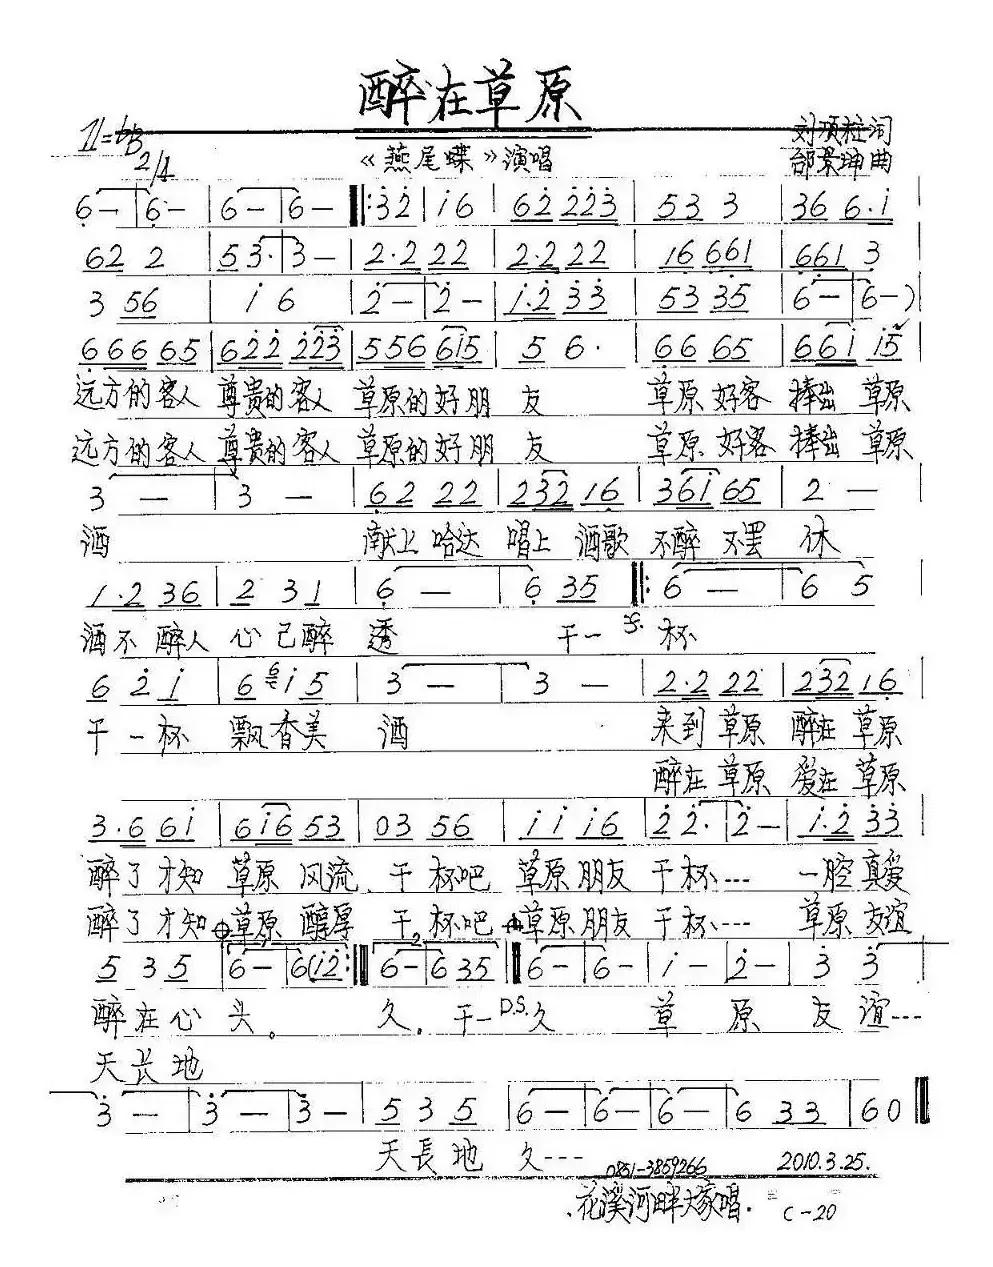 醉在草原
1=bB 2/4
《燕尾蝶》演唱
刘顶柱词
邰景珅曲
6 — | 6 — | 6 — | 6 — ‖: 3 2 | 1 6 | 6 2 2 2 3 | 5 3 3 | 3 6 6 · 1
6 2 2 | 5 3 · | 3 — | 2 · 2 2 2 | 2 · 2 2 2 | 1 6 6 6 1 | 6 6 1 3
3 5 6 | 1 6 | 2 — | 2 — | 1 · 2 3 3 | 5 3 3 5 | 6 — | 6 — )
6 6 6 6 5 | 6 2 2 2 2 3 | 5 5 6 6 1 5 | 5 6 · | 6 6 6 5 | 6 6 1 1 5
远方的客人 尊贵的客人 草原的好朋 友 草原 好客 捧出 草原
远方的客人 尊贵的客人 草原的好朋 友 草原 好客 捧出 草原
3 — | 3 — | 6 2 2 2 | 2 3 2 1 6 | 3 6 1 6 5 | 2 —
酒 献上 哈达 唱上 酒歌 不醉 不罢 休
1 · 2 3 6 | 2 3 1 | 6 — | 6 3 5 ‖: 6 — | 6 5
酒不 醉人 心己醉 透 干一 杯
6 2 1 | 6 6 1 5 | 3 — | 3 — | 2 · 2 2 2 | 2 3 2 1 6
干一杯 飘香美 酒 来到 草原 醉在 草原
醉在 草原 爱在 草原
3 · 6 6 1 | 6 1 6 5 3 | 0 3 5 6 | 1 1 1 6 | 2 2 · | 2 — | 1 · 2 3 3
醉了 才知 草原 风流 干 杯吧 草原朋友 干杯、--- 一腔 真爱
醉了 才知 草原 醇厚 干 杯吧 草原朋友 干杯、--- 草原 友谊
5 3 5 | 6 — | 6 ( 1 2 :‖ 6 — | 6 3 5 ‖ 6 — | 6 — | 1 — | 2 — | 3 3
醉在心 头。 久。 干一 D.S. 久 草 原 友 谊---
天长地
3 — | 3 — | 3 — | 5 3 5 | 6 — | 6 — | 6 — | 6 3 3 | 6 0 ‖
天長地 久---
0851-3859266 2010.3.25.
花溪河畔大家唱. C-20